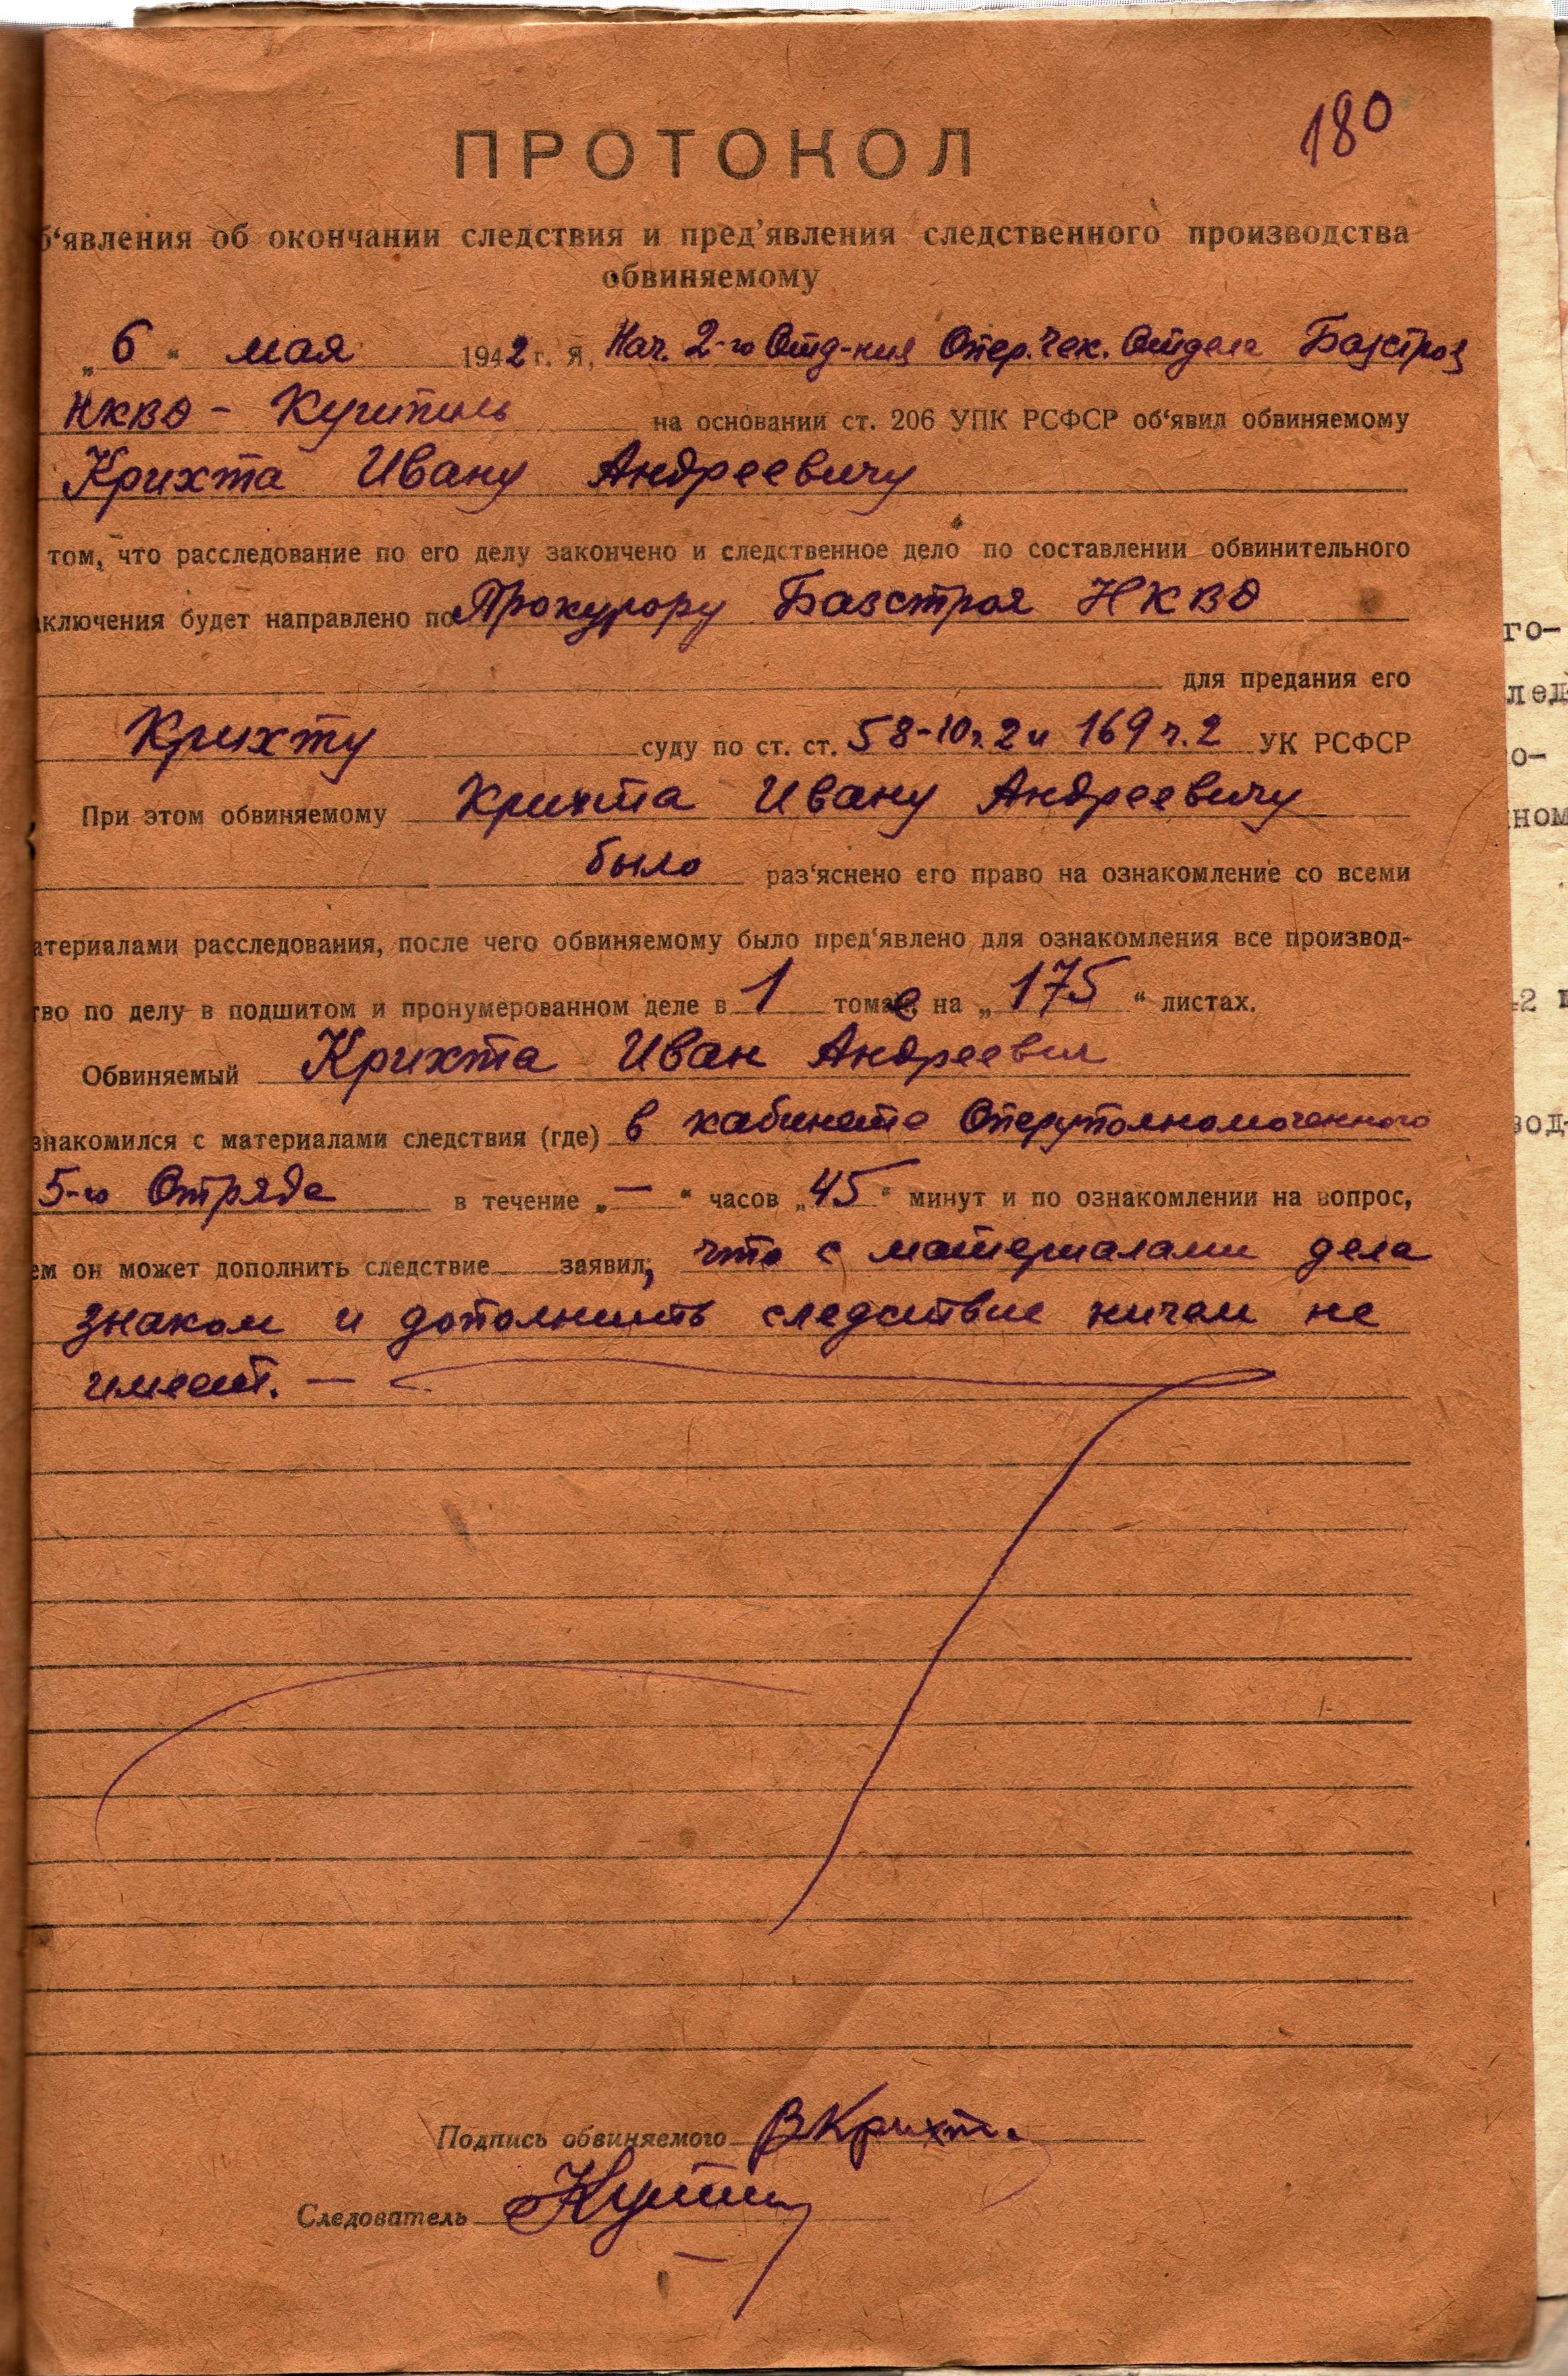 180
ПРОТОКОЛ
б‘явления об окончании следствия и пред’явления следственного производства
обвиняемому
„6“ мая 1942 г. Я, Нач. 2-го Отд-ния Опер. Чек. Отдела Базстроя
НКВД -
на основании ст. 206 УПК РСФСР об‘явил обвиняемому
Крихта Ивану Андреевичу
том, что расследование по его делу закончено и следственное дело по составлении обвинительного
ключения будет направлено по Прокурору Базстроя НКВД
для предания его
Крихту суду по ст. ст. 58-10 ч. 2 и 169 ч. 2 УК РСФСР
При этом обвиняемому Крихта Ивану Андреевичу
было раз‘яснено его право на ознакомление со всеми
атериалами расследования, после чего обвиняемому было пред‘явлено для ознакомления все производ-
тво по делу в подшитом и пронумерованном деле в 1 томе на „175“ листах.
Обвиняемый Крихта Иван Андреевич
знакомился с материалами следствия (где) в кабинете Оперуполномоченного
5-го Отряда в течение „—“ часов „45“ минут и по ознакомлении на вопрос,
ем он может дополнить следствие заявил, что с материалами дела
знаком и дополнить следствие ничем не
имеет. —
Подпись обвиняемого ВКрихт.
Следователь
го-
лед
о-
ном
42 г
вод-